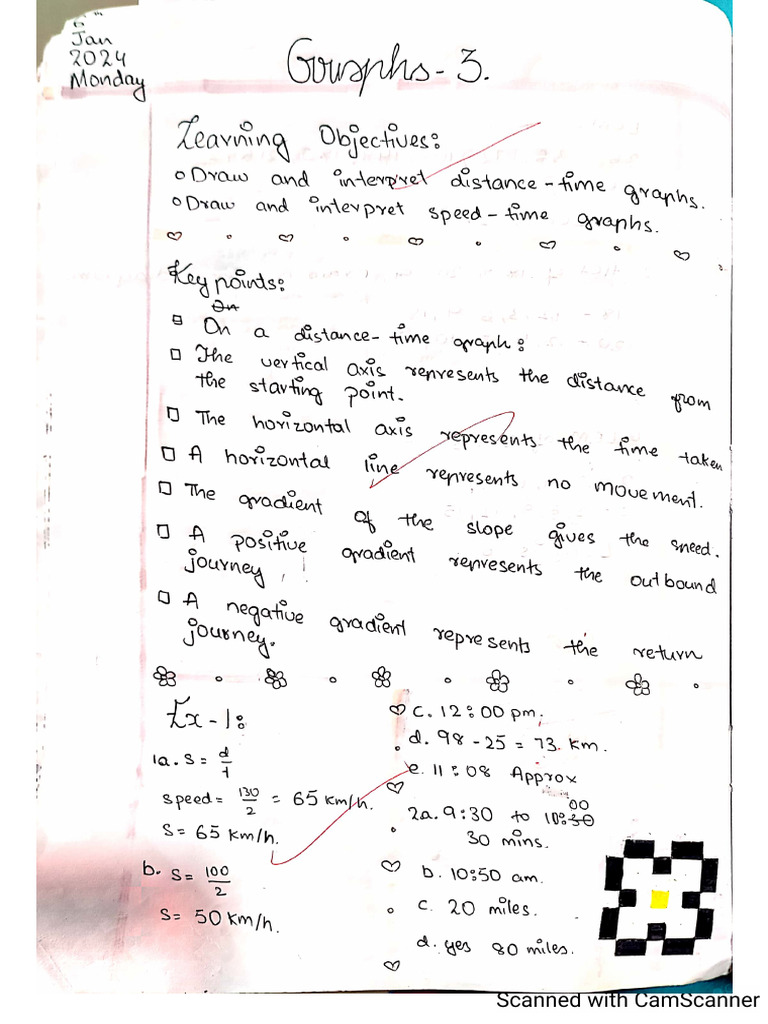 Jan
2024
Monday
Graphs - 3.
Learning Objectives:
Draw and interpret distance-time graphs.
Draw and interpret speed-time graphs.
Key points:
On a distance-time graph:
The vertical axis represents the distance from
the starting point.
The horizontal axis represents the time taken
A horizontal line represents no movement.
The gradient of the slope gives the speed.
A positive gradient represents the outbound
journey.
A negative gradient represents the return
journey.
Ex-1:
1a. s = d/t
speed = 130/2 = 65 km/h.
s = 65 km/h.
b. s = 100/2
s = 50 km/h.
c. 12:00 pm.
d. 98 - 25 = 73 km.
e. 11:08 Approx
2a. 9:30 to 10:00
30 mins.
b. 10:50 am.
c. 20 miles.
d. yes 80 miles.
Scanned with CamScanner